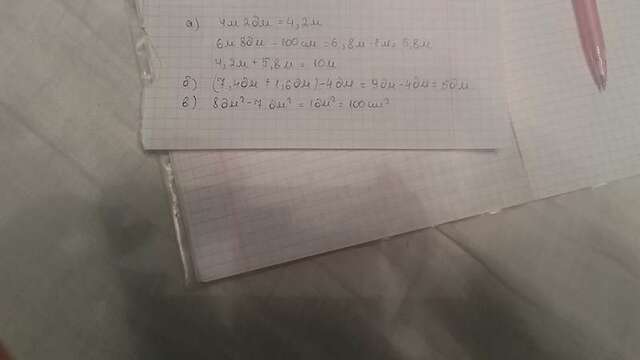 а) 4м 2дм = 4,2м
6м 8дм - 100см = 6,8м - 1м = 5,8м
4,2м + 5,8м = 10м
б) (7,4дм + 1,6дм) - 4дм = 9дм - 4дм = 5дм
в) 8дм² - 7дм² = 1дм² = 100см²